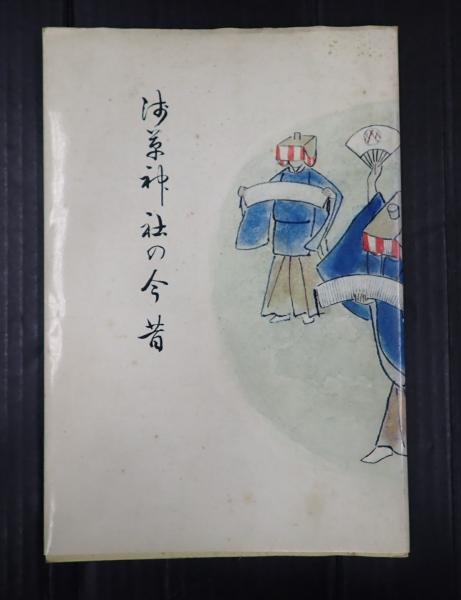 浅草神社の今昔